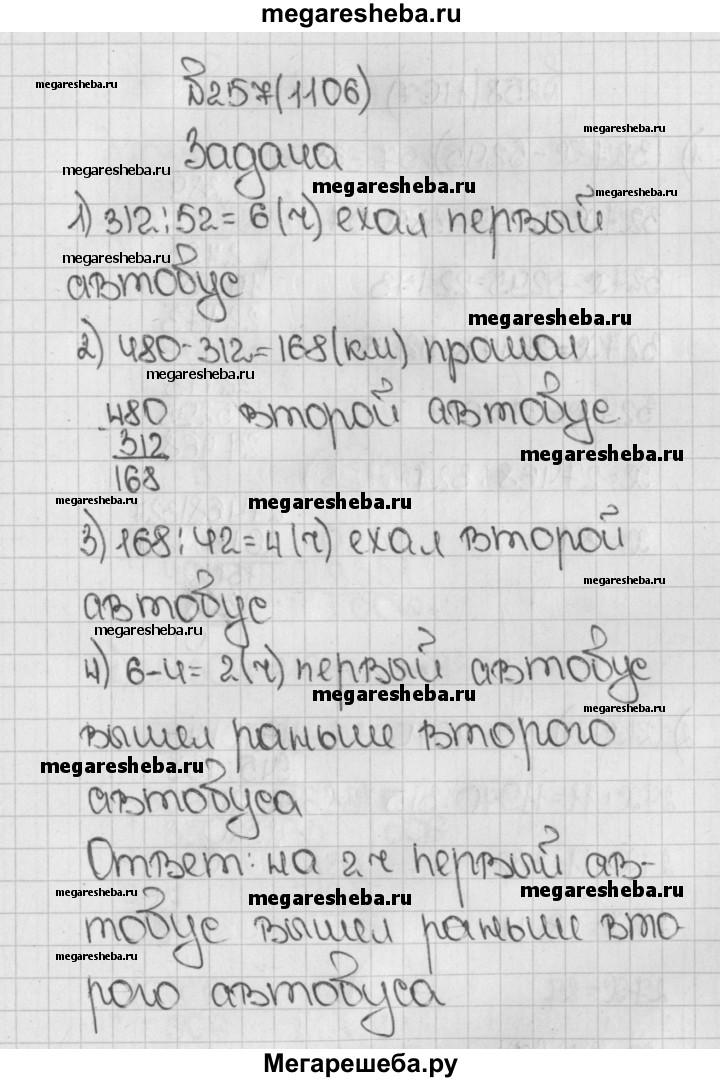 megaresheba.ru
№257(1106)
megaresheba.ru
megaresheba.ru
Задача
megaresheba.ru
megaresheba.ru
megaresheba.ru
1) 312:52=6(ч) ехал первый
megaresheba.ru
автобус
megaresheba.ru
2) 480-312=168(км) прошал
megaresheba.ru
480 второй автобус
312
megaresheba.ru
168
megaresheba.ru
megaresheba.ru
3) 168:42=4(ч) ехал второй
megaresheba.ru
автобус
megaresheba.ru
4) 6-4=2(ч) первый автобус
megaresheba.ru
megaresheba.ru
вышел раньше второго
megaresheba.ru
автобуса
Ответ: на 2ч первый ав-
megaresheba.ru
megaresheba.ru
megaresheba.ru
тобус вышел раньше вто-
megaresheba.ru
рого автобуса
Мегарешеба.ру